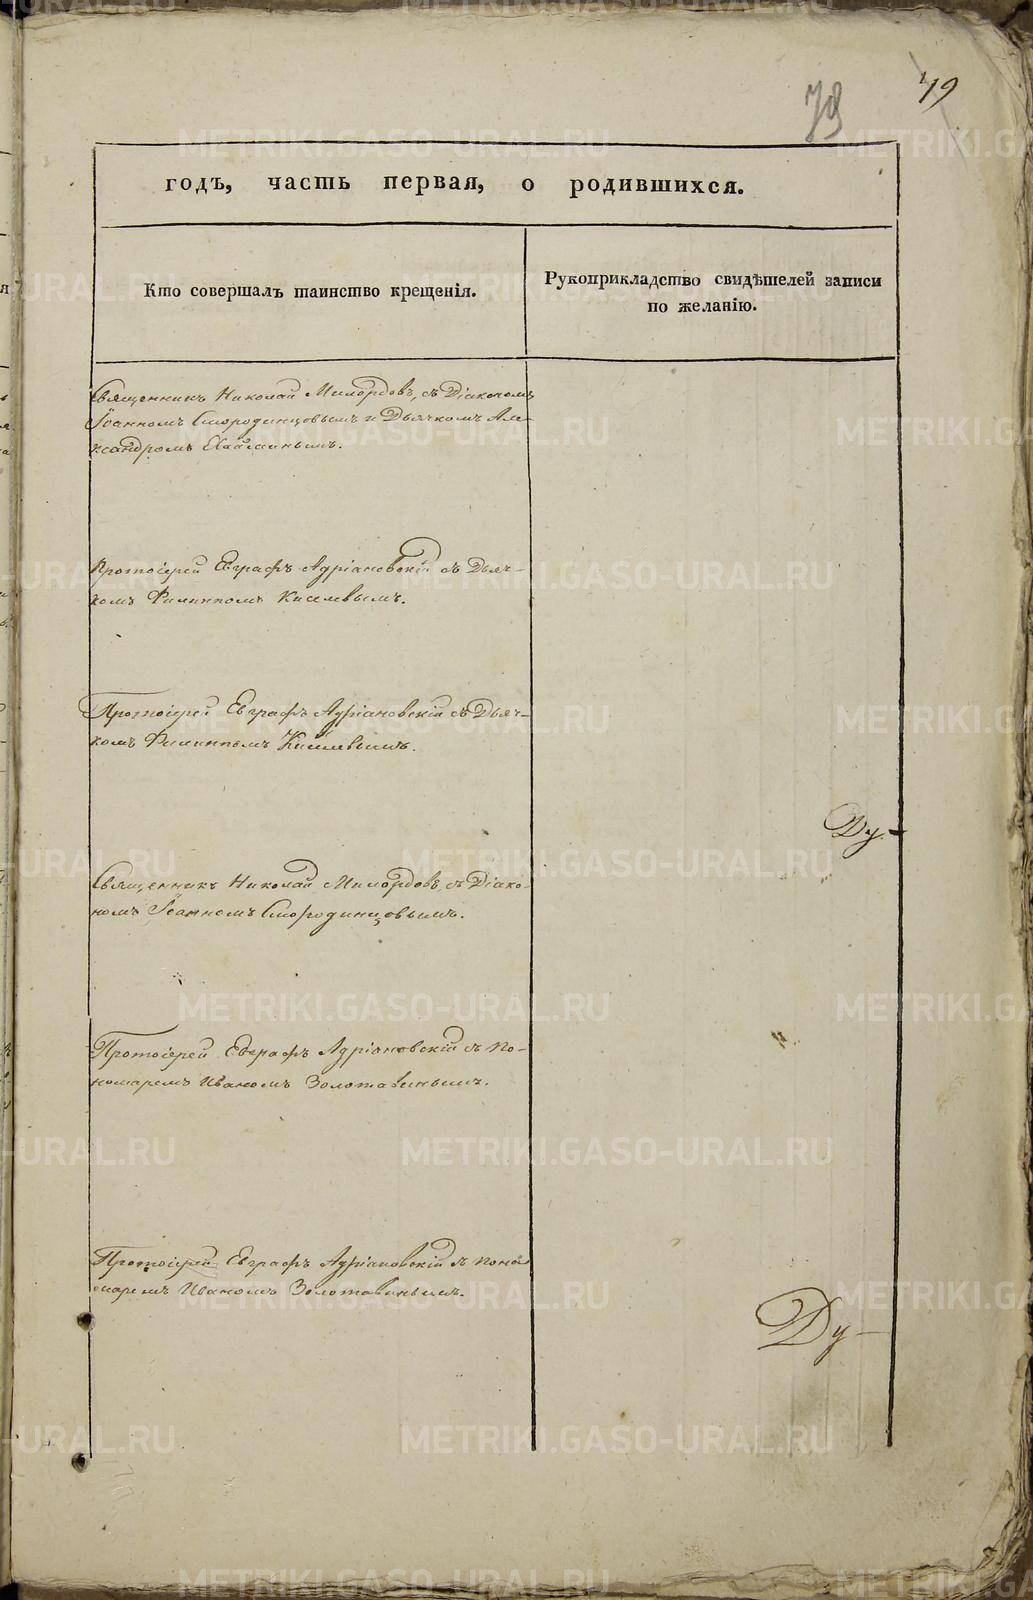 79
79
годъ, часть первая, о родившихся.
Кто совершалъ таинство крещенія.
Рукоприкладство свидѣтелей записи
по желанію.
Священникъ Николай Милордовъ, съ Діакономъ
Іоанномъ Смородинцовымъ и Дьячкомъ Але-
ксандромъ
Протоіерей Евграфъ Адріановскій съ Дьяч-
комъ Филиппомъ Киселевымъ.
Протоіерей Евграфъ Адріановскій съ Дьяч-
комъ Филиппомъ Киселевымъ.
Ду-
Священникъ Николай Милордовъ, съ Діако-
номъ Іоанномъ Смородинцовымъ.
Протоіерей Евграфъ Адріановскій съ По-
номаремъ Иваномъ Золотавинымъ.
Протоіерей Евграфъ Адріановскій съ Поно-
маремъ Иваномъ Золотавинымъ.
Ду-
METRIKI.GASO-URAL.RU